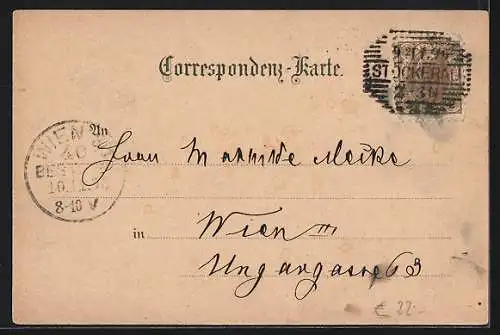 Correspondenz-Karte.
STOCKERAU
An
WIEN
BEST
8-10 V
Frau Mathilde
in Wien III
Ungargasse 63
€ 22.-